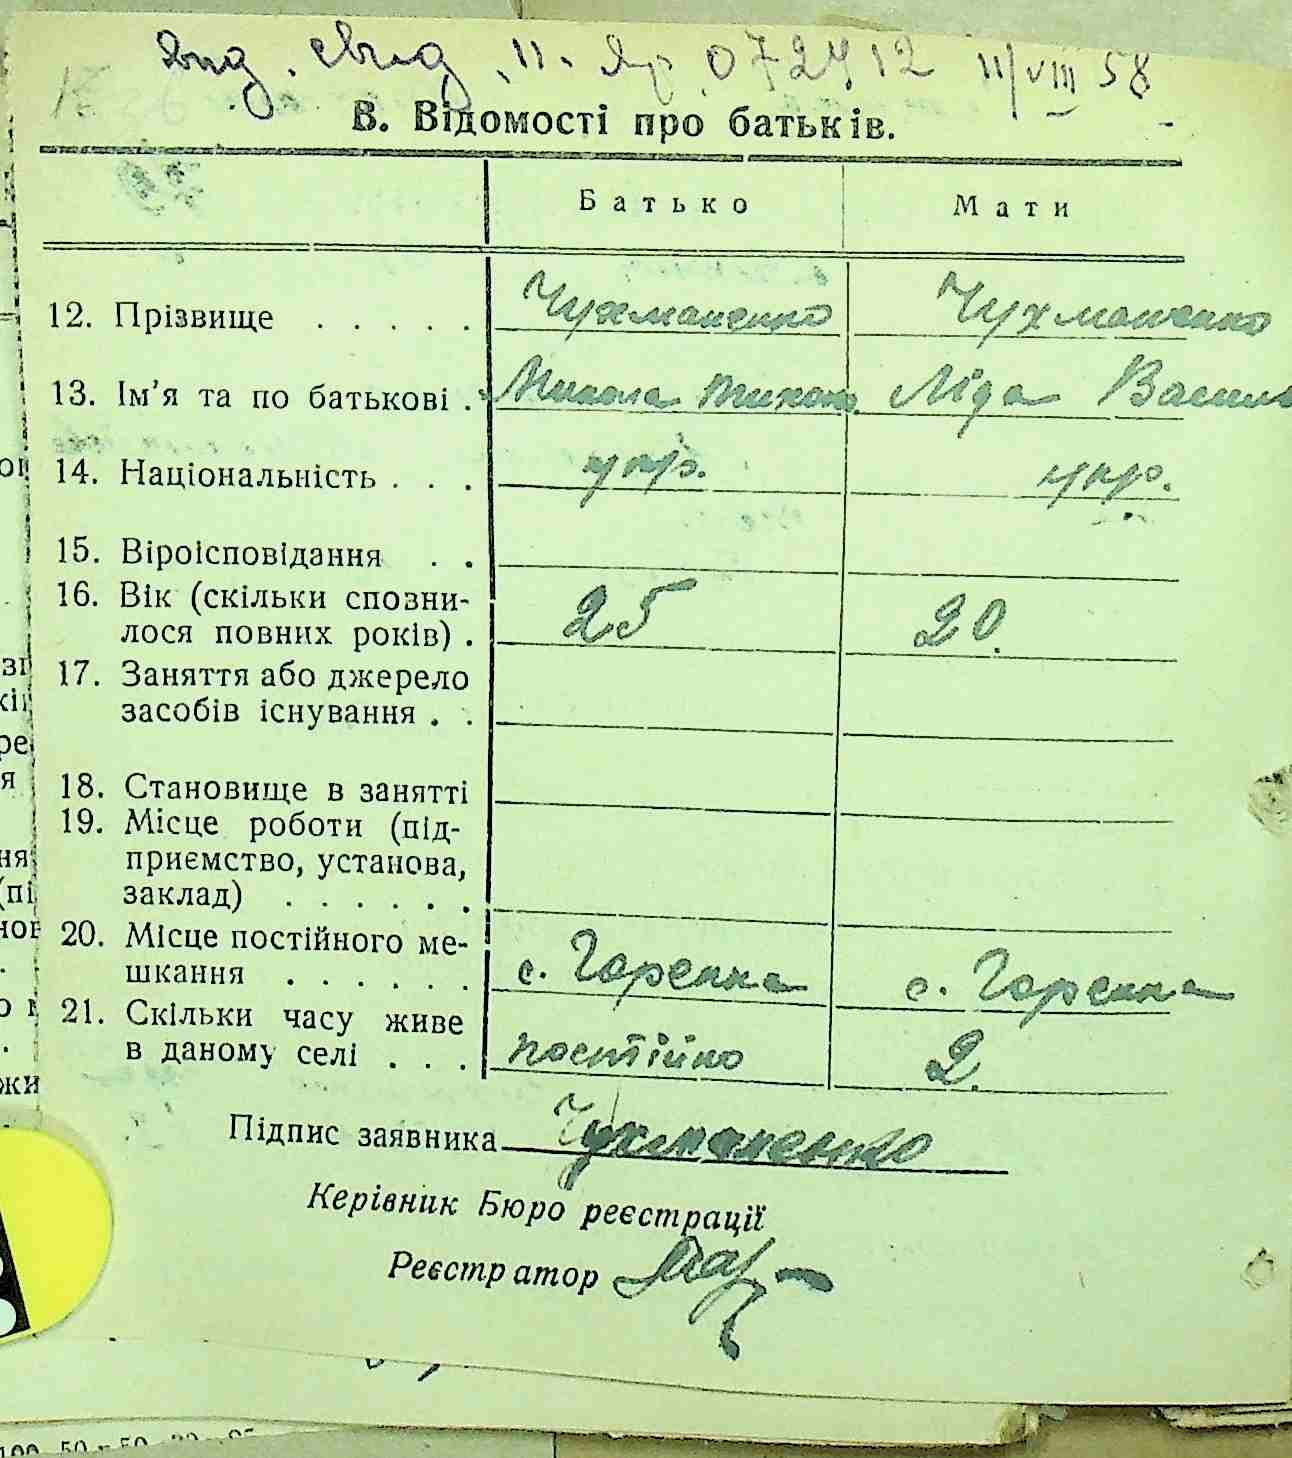 Вид. свид. II. Яр. 072412 11/VIII 58
В. Відомості про батьків.
Батько Мати
12. Прізвище . . . . . Чухманенко Чухманенко
13. Ім'я та по батькові . Микола Тихон. Ліда Василь
14. Національність . . . укр. укр.
15. Віроісповідання . .
16. Вік (скільки спозни-
лося повних років) . 25 20.
17. Заняття або джерело
засобів існування . .
18. Становище в занятті
19. Місце роботи (під-
приємство, установа,
заклад) . . . . . .
20. Місце постійного ме-
шкання . . . . . . с. Горенка с. Горенка
21. Скільки часу живе
в даному селі . . . постійно 2.
Підпис заявника Чухманенко
Керівник Бюро реєстрації
Реєстратор